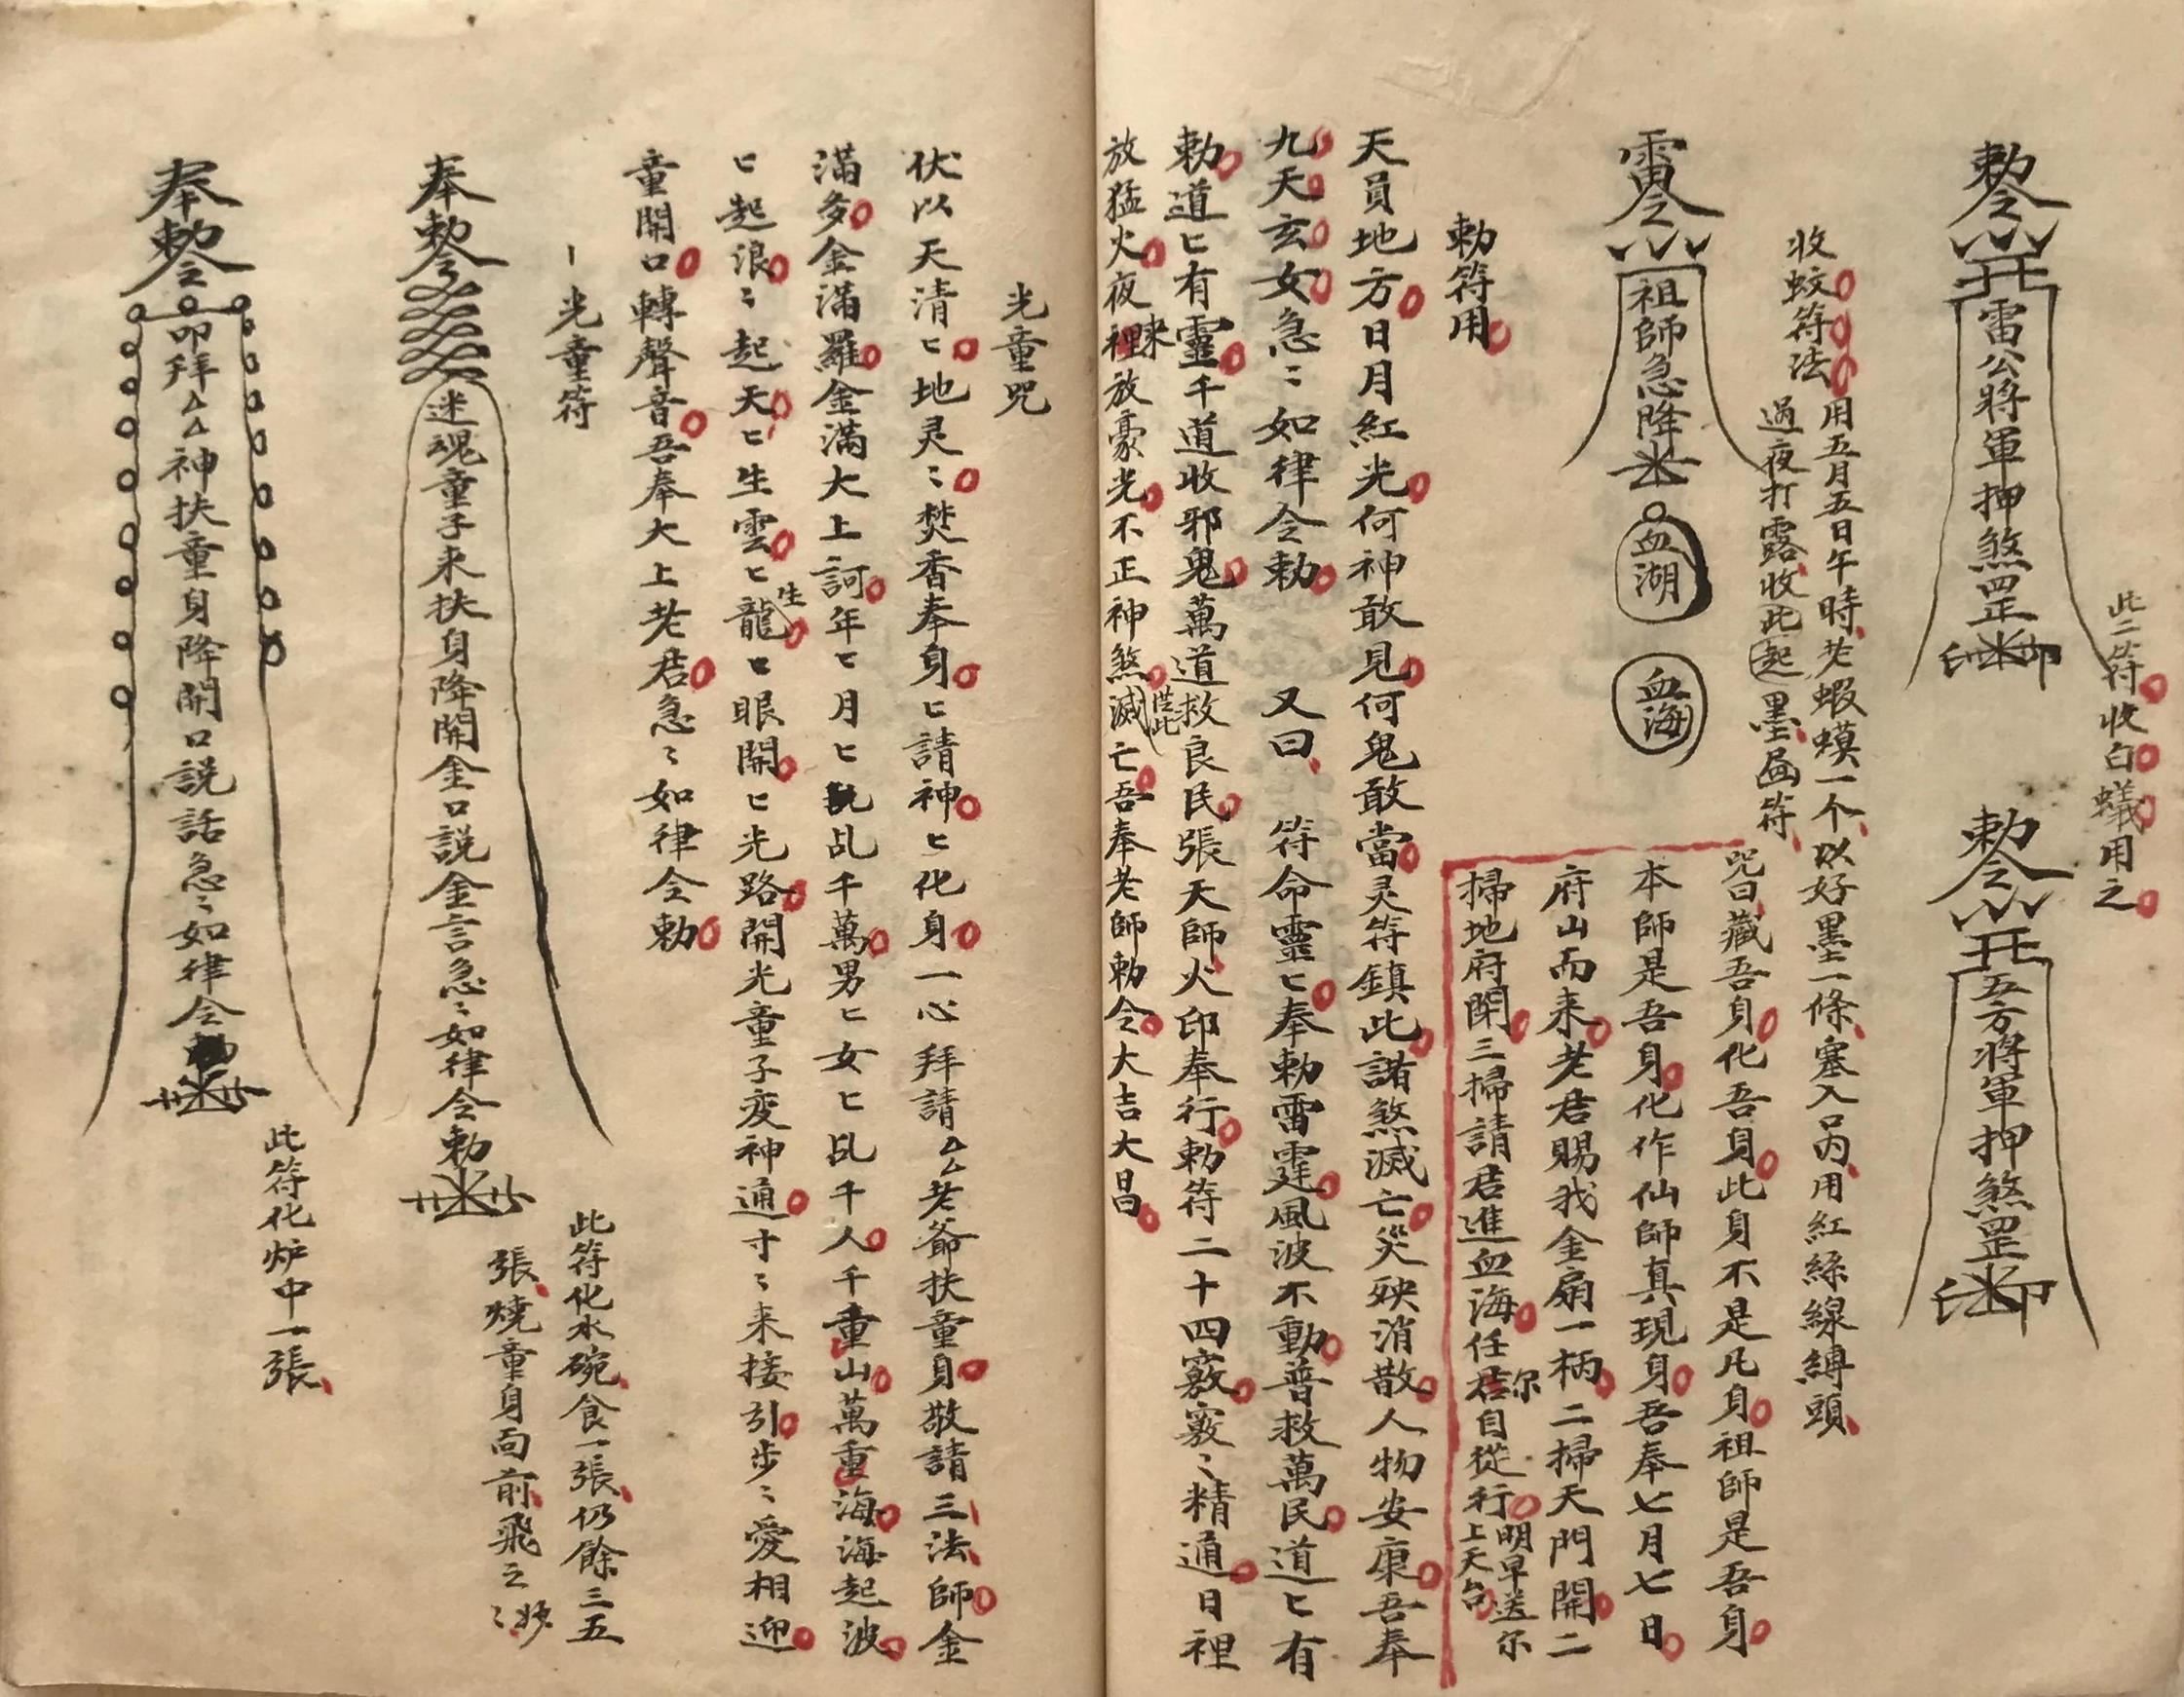 此二符收白蟻用之
勅令
雷公將軍押煞罡
印
勅令
五方將軍押煞罡
印
收蚊符法
用五月五日午時老蝦蟆一个以好墨一條塞入口內用紅絲線縛頭
過夜打露收此起墨画符
咒曰藏吾身化吾身此身不是凡身祖師是吾身
本師是吾身化作仙師真現身吾奉七月七日
府山而来老君賜我金扇一柄二掃天門開二
掃地府閉三掃請君進血海任君尔自從行明早送尔上天台
雷令
祖師急降
血湖
血海
勅符用
天員地方日月紅光何神敢見何鬼敢當灵符鎮此諸煞滅亡災殃消散人物安康吾奉
九天玄女急〻如律令勅 又曰 符命靈匕奉勅雷霆風波不動普救萬民道匕有
勅道匕有靈千道收邪鬼萬道救良民張天師火印奉行勅符二十四竅竅〻精通日裡
放猛火夜裡来放豪光不正神煞滅亡吾奉老師勅令大吉大昌
光童咒
伏以天清匕地灵〻焚香奉身匕請神匕化身一心拜請厶厶老爺扶童身敬請三法師金
滿多金滿羅金滿大上訶年匕月匕乱千萬男匕女匕乱千人千重山萬重海海起波
匕起浪〻起天匕生雲匕生龍匕眼開匕光路開光童子変神通寸〻来接引步〻愛相迎
童開口轉聲音吾奉大上老君急〻如律令勅
一光童符
奉勅令
迷魂童子来扶身降開金口説金言急〻如律令勅
此符化水碗食一張仍餘三五
張燒童身面前飛之〻妙
奉勅令
叩拜厶厶神扶童身降開口説話急〻如律令勅
此符化炉中一張